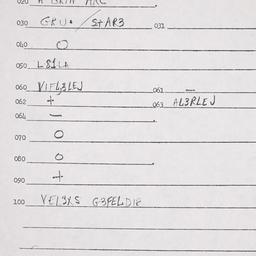 020
030 GRU. / STAR3 031
040 O
050 L81LA
060 VIFL3LEJ 061 —
062 + 063 AL3RLEJ
064 —
070 O
080 O
090 +
100 VEL3XS G3FELDIE